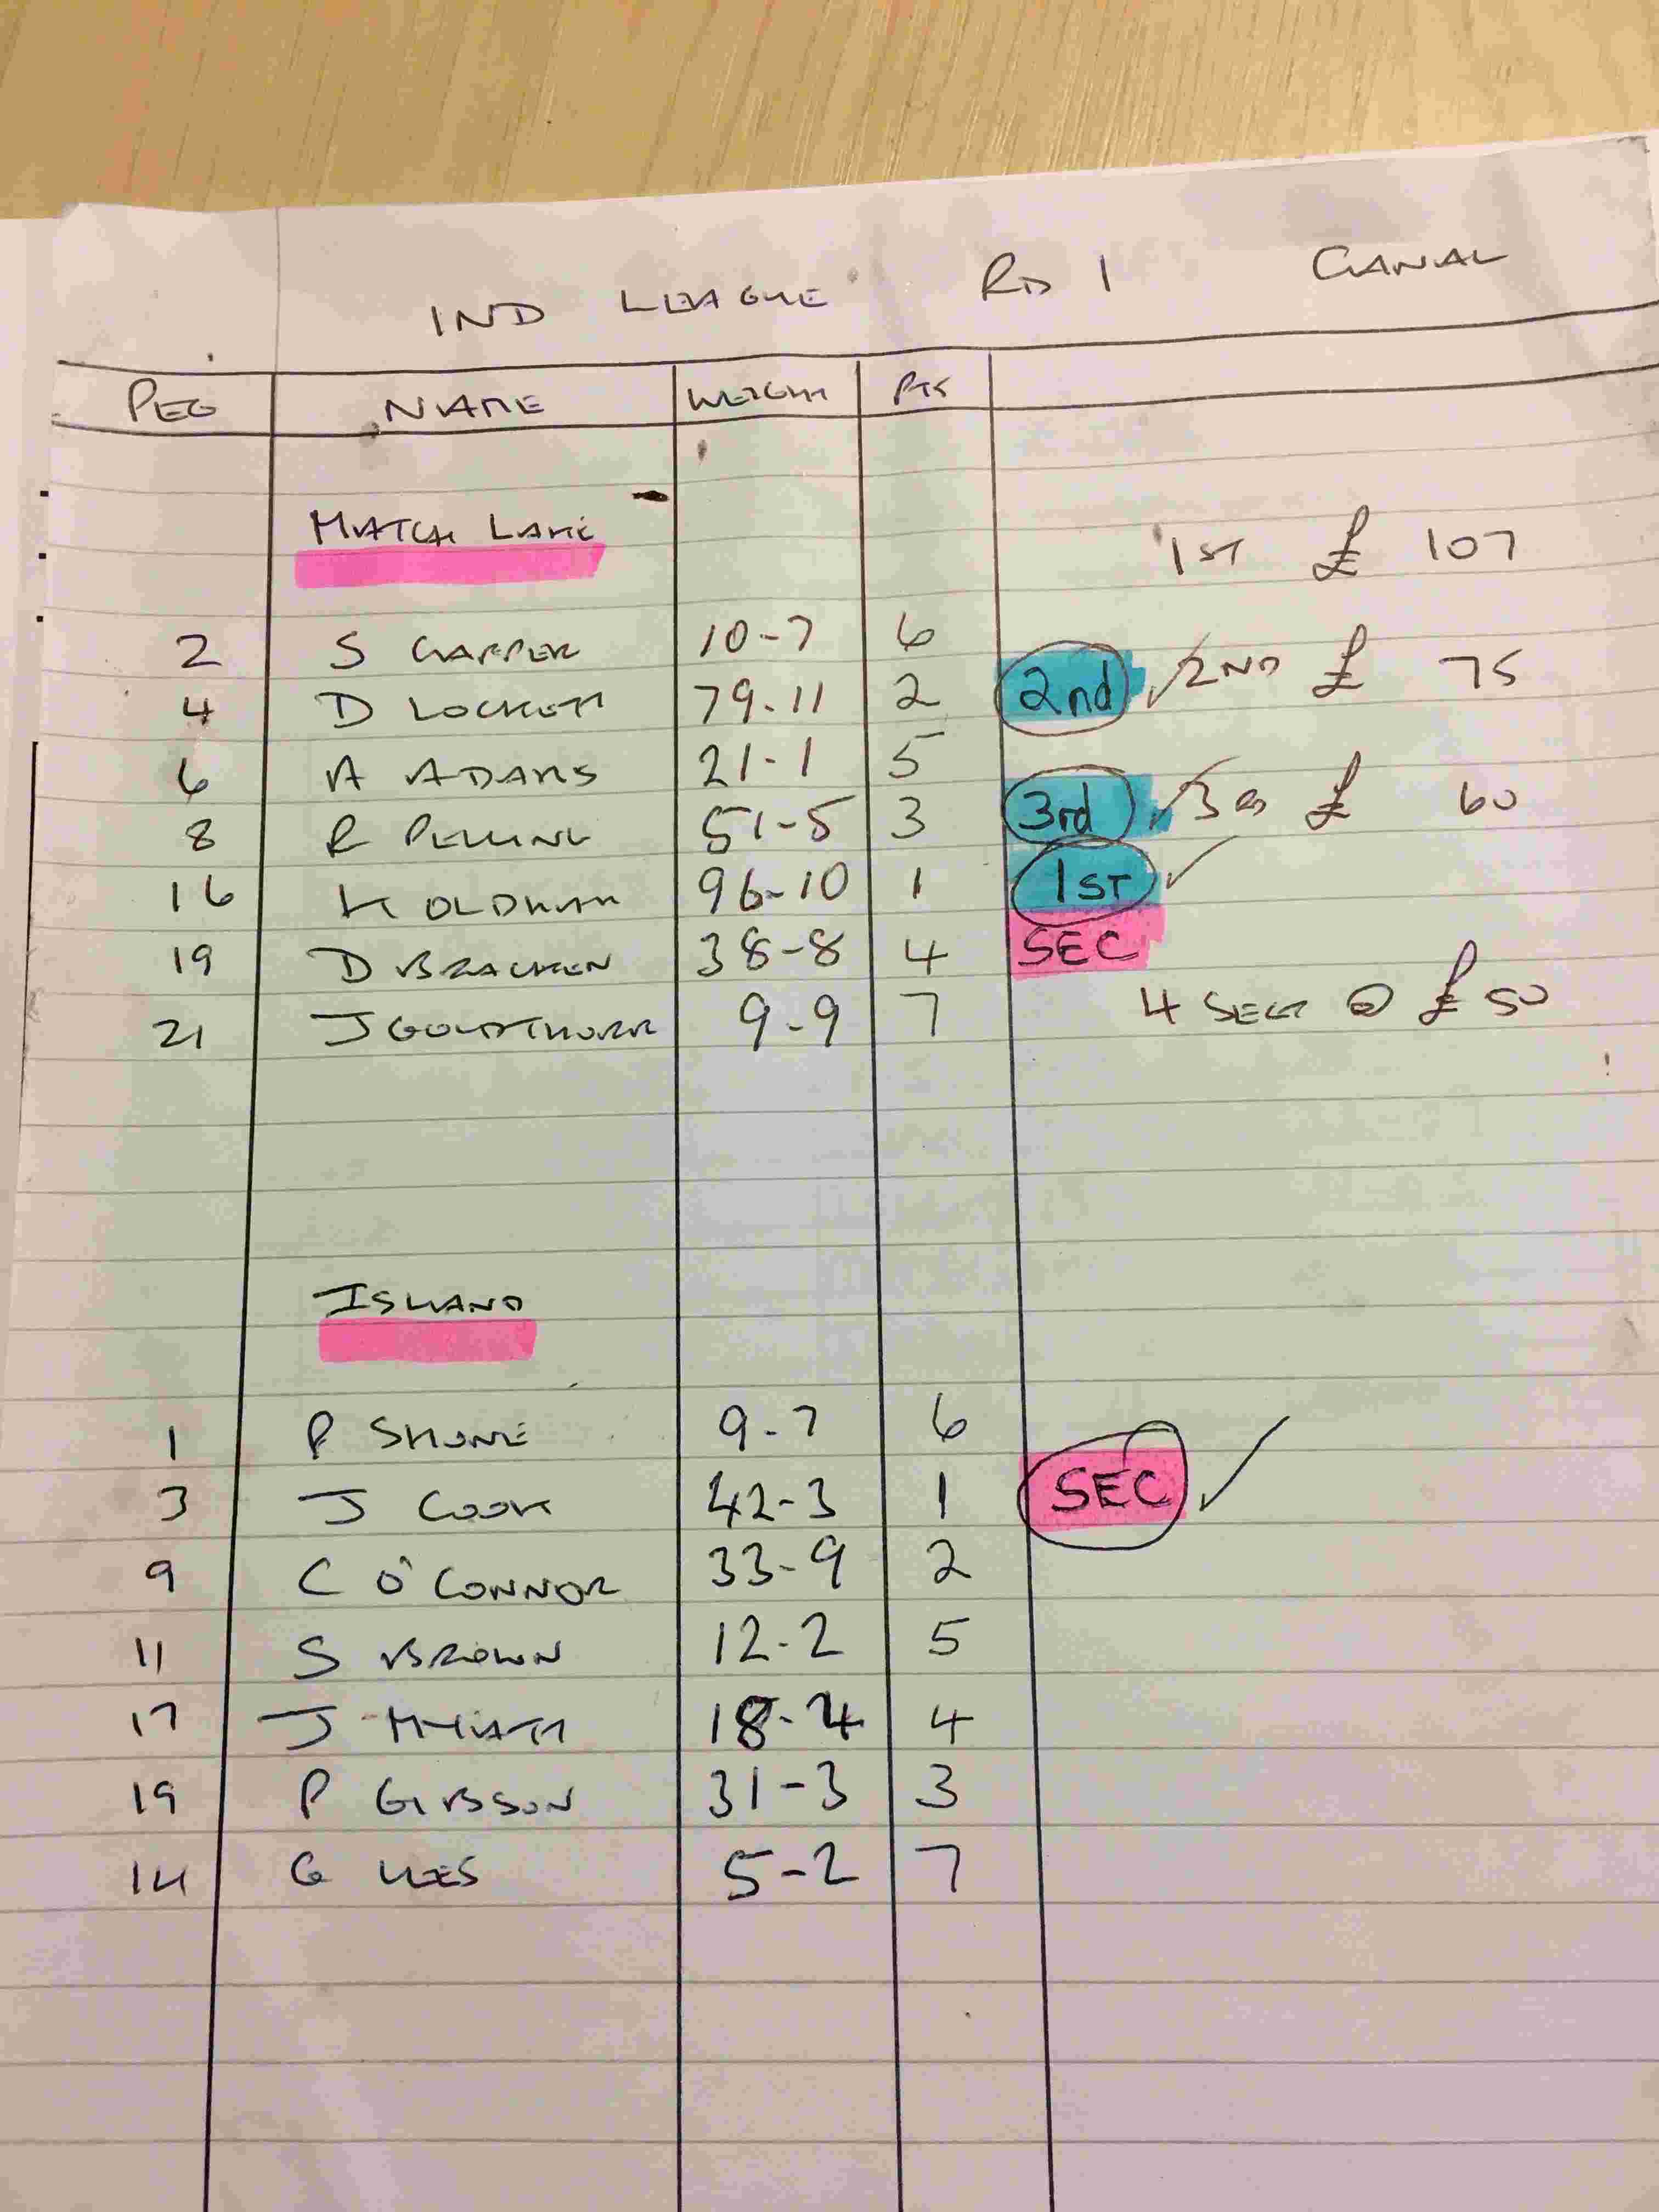 IND LEAGUE RD 1 CANAL
PEG NAME WEIGHT PTS
MATCH LAKE
1ST £ 107
2 S CAPPER 10-7 6
4 D LOCKETT 79-11 2 2nd 2ND £ 75
6 A ADAMS 21-1 5
8 R PELLING 51-5 3 3rd 3RD £ 60
16 K OLDHAM 96-10 1 1ST
19 D BRACKEN 38-8 4 SEC
21 J GOLDTHORP 9-9 7
4 SECS @ £50
ISLAND
1 P SHONE 9-7 6
3 J COOK 42-3 1 SEC
9 C O'CONNOR 33-9 2
11 S BROWN 12-2 5
17 J MYATT 18-4 4
19 P GIBSON 31-3 3
14 G 5-2 7